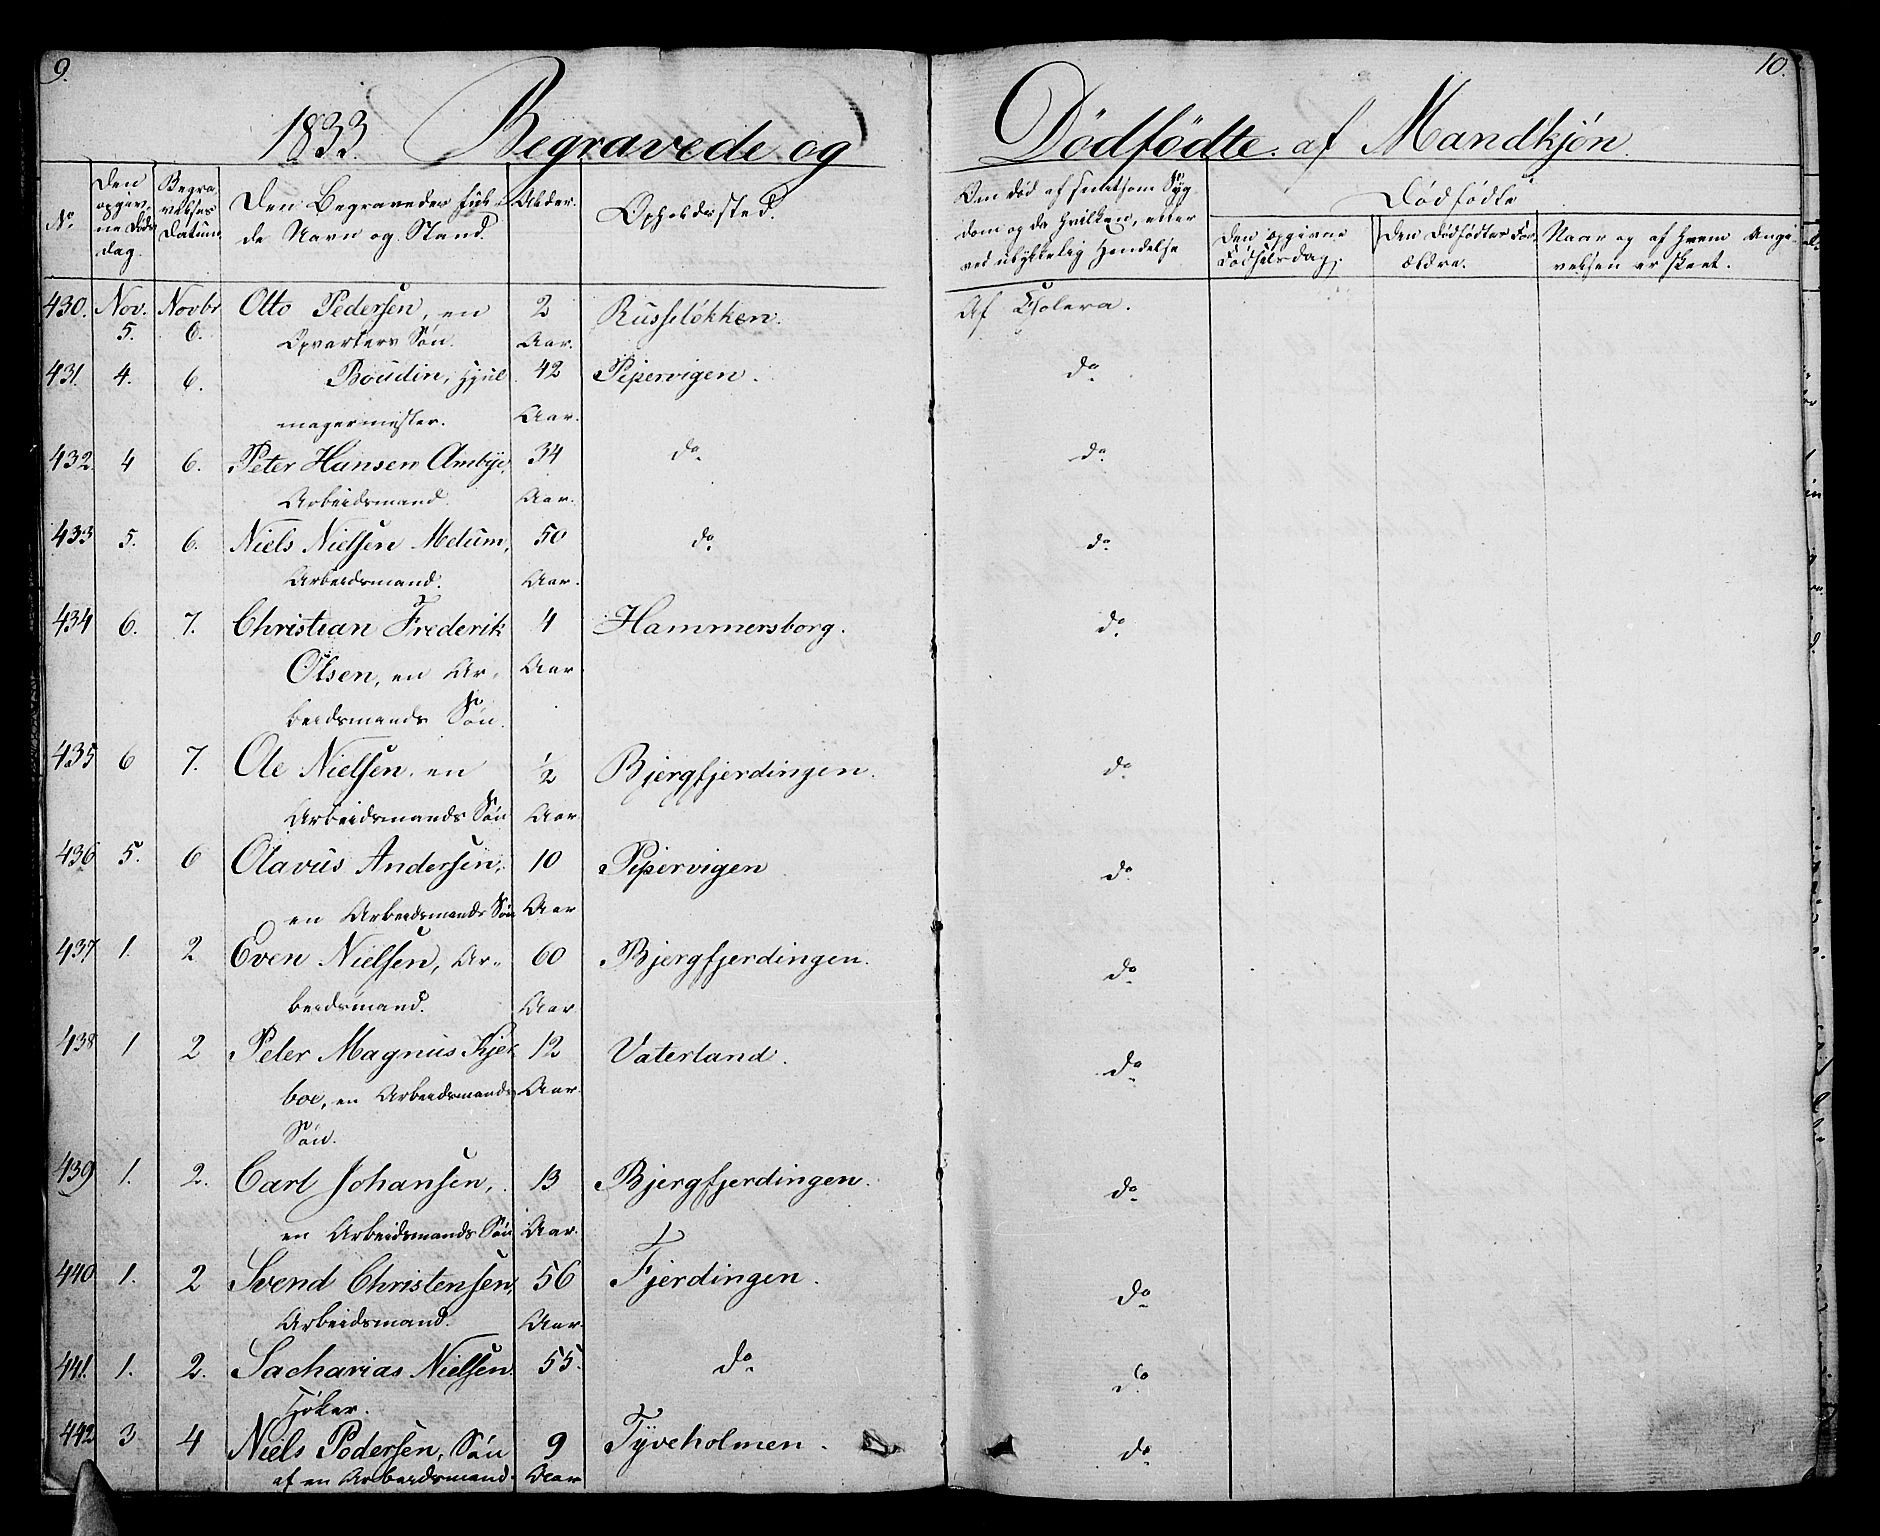 9.
10.
1833. Begravede og Dödfödte af Mandkjön.
No.
Den opgivne Döds dag.
Begravelses Datum.
Den Begravedes fulde Navn og Stand.
Alder.
Opholdssted.
Om död af smitsom Sygdom og da hvilken, eller ved ulykkelig Hendelse
Dödfödte
Den opgivne Födselsdag.
Den Dödfödtes Forældre.
Naar og af hvem Angivelsen er skeet.
430. Nov. 5. Novbr 6. Otto Pedersen, en 2 Russelökken. Af Cholera.
Opvarters Sön. Aar.
431. 4. 6. Boudin, Hjul 42 Pipervigen. do
magermester. Aar.
432. 4 6. Peter Hansen Ambye, 34 do do
Arbeidsmand. Aar.
433 5. 6. Niels Nielsen Melum, 50 do do
Arbeidsmand. Aar.
434 6. 7. Christian Frederik 4 Hammersborg. do
Olsen, en Ar- Aar.
beidsmands Sön.
435 6 7. Ole Nielsen, en 1/2 Bjergfjerdingen. do
Arbeidsmands Sön Aar
436 5. 6 Olavus Andersen, 10 Pipervigen do
en Arbeidsmands Sön Aar
437 1. 2 Even Nielsen, Ar- 60 Bjergfjerdingen. do
beidsmand. Aar.
438 1 2 Peter Magnus Kjer 12 Vaterland. do
boe, en Arbeidsmands Aar.
Sön.
439 1. 2. Carl Johansen, 13 Bjergfjerdingen. do
en Arbeidsmands Sön Aar.
440 1. 2 Svend Christensen, 56 Fjerdingen. do
Arbeidsmand. Aar.
441. 1. 2. Sacharias Nielsen 55. do do
Höker.
442 3 4 Niels Pedersen, Sön 9 Tyveholmen. do
af en Arbeidsmand. Aar